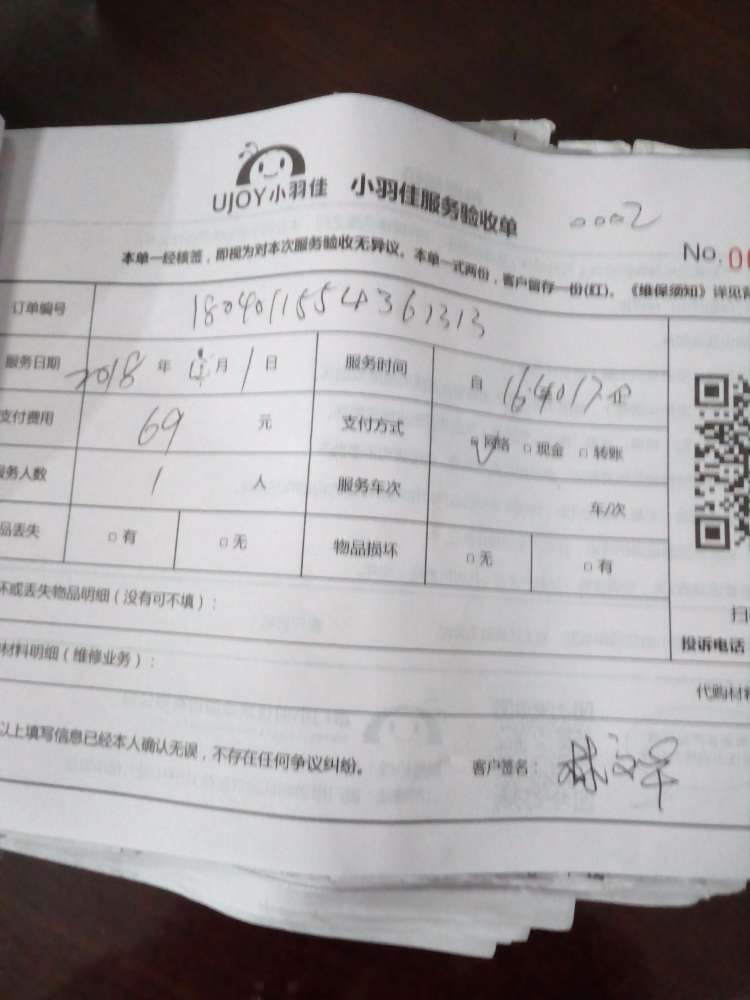 UJOY小羽佳 小羽佳服务验收单 0002
No. 00
本单一经核签，即视为对本次服务验收无异议。本单一式两份，客户留存一份(红)。《维保须知》详见
订单编号 1804011554361313
服务日期 2018 年 4 月 1 日 服务时间 自
支付费用 69 元 支付方式 网络 □ 现金 □ 转账
服务人数 1 人 服务车次 车/次
品丢失 □ 有 □ 无 物品损坏 □ 无 □ 有
坏或丢失物品明细（没有可不填）：
扫
投诉电话
材料明细（维修业务）：
代购材料
以上填写信息已经本人确认无误，不存在任何争议纠纷。 客户签名：